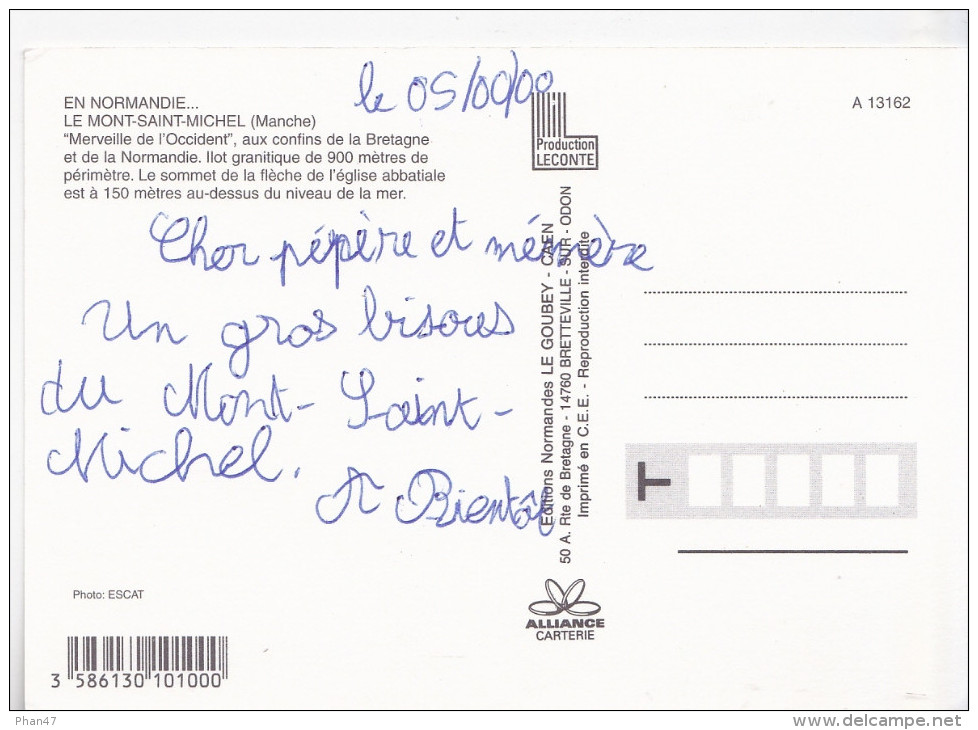 le 05/00/00
EN NORMANDIE...
LE MONT-SAINT-MICHEL (Manche)
"Merveille de l'Occident", aux confins de la Bretagne
et de la Normandie. Ilot granitique de 900 mètres de
périmètre. Le sommet de la flèche de l'église abbatiale
est à 150 mètres au-dessus du niveau de la mer.
A 13162
Production
LECONTE
Cher pépère et mémère
Un gros bisous
du Mont-Saint-
Michel.
A Bientôt
Editions Normandes LE GOUBEY - CAEN
50 A. Rte de Bretagne - 14760 BRETTEVILLE - SUR - ODON
Imprimé en C.E.E. - Reproduction interdite
Photo: ESCAT
ALLIANCE
CARTERIE
3 586130 101000
Phan47
delcampe.net